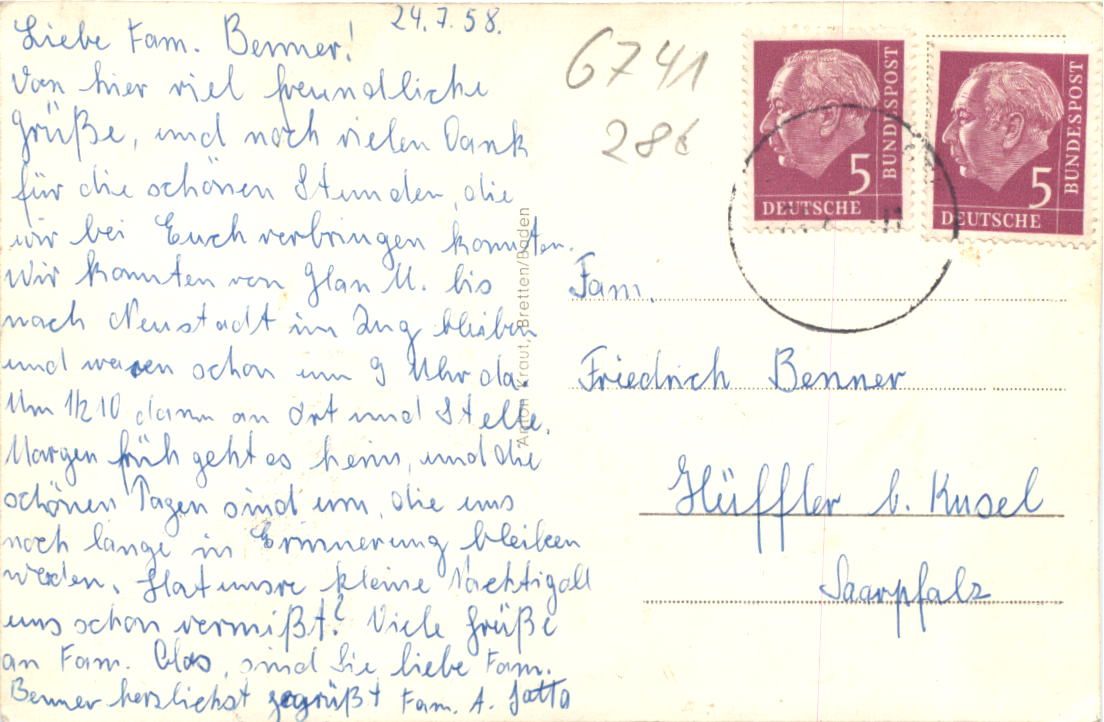 24.7.58.
Liebe Fam. Benner!
Von hier viel freundliche
Grüße, und noch vielen Dank
für die schönen Stunden, die
wir bei Euch verbringen konnten.
Wir konnten von Glan M. bis
nach Neustadt im Zug bleiben
und waren schon um 9 Uhr da.
Um 1/2 10 dann an Ort und Stelle.
Morgen früh geht es heim, und die
schönen Tagen sind um, die uns
noch lange in Erinnerung bleiben
werden. Hat unsre kleine Nachtigall
uns schon vermißt? Viele Grüße
an Fam. sind Sie liebe Fam.
Benner herzlichst gegrüßt Fam. A.
Anton Kraut, Bretten/Baden
6741
286
5
DEUTSCHE
BUNDESPOST
5
DEUTSCHE
BUNDESPOST
Fam.
Friedrich Benner
Hüffler b. Kusel
Saarpfalz